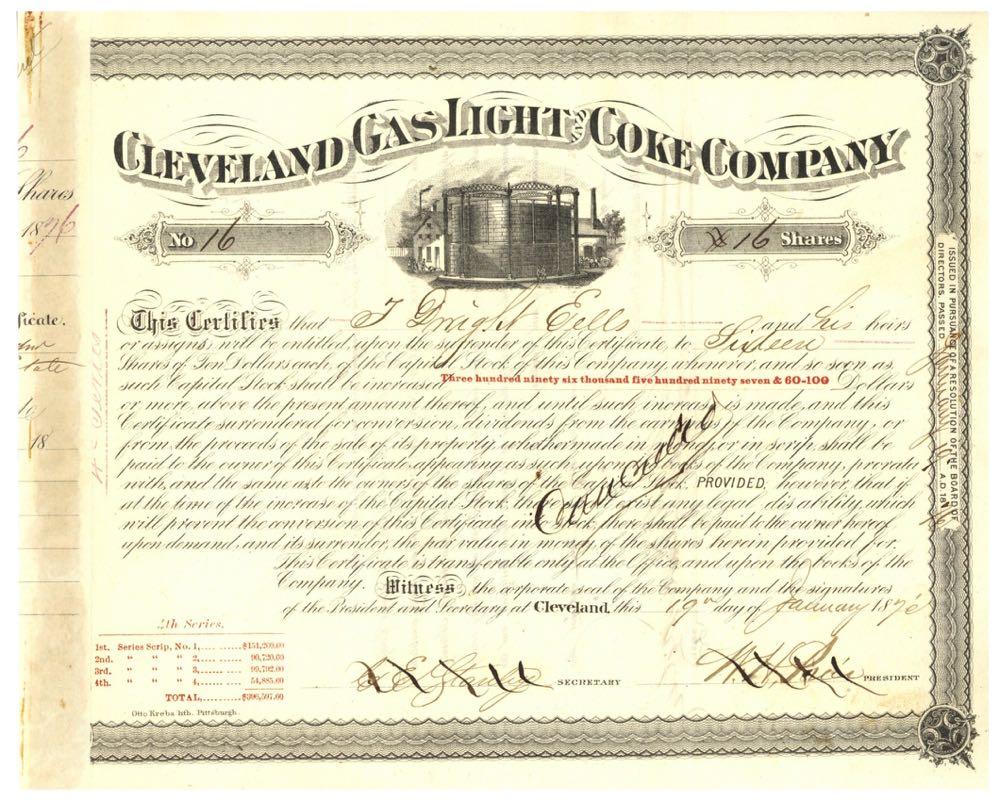 Shares
1876
ficate.
18
CLEVELAND GAS LIGHT AND COKE COMPANY
No 16
16 Shares
This Certifies that T Dwight Eells and his heirs
or assigns, will be entitled, upon the surrender of this Certificate, to Sixteen
Shares of Ten Dollars each, of the Capital Stock of this Company, whenever, and so soon as
such Capital Stock shall be increased Three hundred ninety six thousand five hundred ninety seven & 60-100 Dollars
or more, above the present amount thereof, and until such increase is made, and this
Certificate surrendered for conversion, dividends from the earnings of the Company, or
from the proceeds of the sale of its property, whether made in money or in scrip, shall be
paid to the owner of this Certificate, appearing as such, upon the books of the Company, pro rata
with, and the same as to the owners of the shares of the Capital Stock. PROVIDED, however, that if
at the time of the increase of the Capital Stock, there shall exist any legal disability, which
will prevent the conversion of this Certificate into stock, there shall be paid to the owner hereof
upon demand, and its surrender, the par value in money, of the shares herein provided for.
This Certificate is transferable only at the Office, and upon the books of the
Company. Witness, the corporate seal of the Company and the signatures
of the President and Secretary at Cleveland, this 19th day of January 1876
Cancelled
ISSUED IN PURSUANCE OF A RESOLUTION OF THE BOARD OF
DIRECTORS, PASSED A.D. 18
4th Series.
1st. Series Scrip, No. 1, $151,200.00
2nd. " " " 2, 90,720.00
3rd. " " " 3, 99,792.00
4th. " " " 4, 54,885.60
TOTAL, $396,597.60
Otto Krebs lith. Pittsburgh.
SECRETARY
PRESIDENT